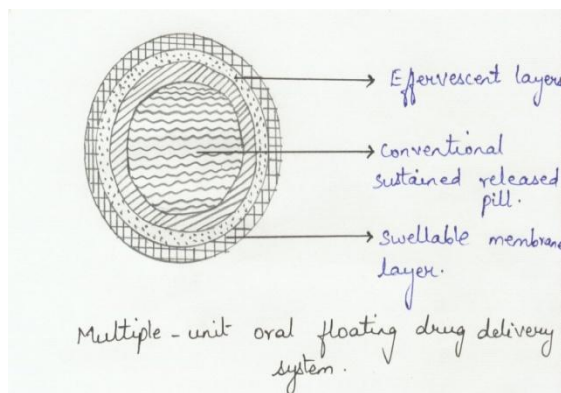 Effervescent layers
conventional
sustained released
pill.
swellable membrane
layer.
Multiple-unit oral floating drug delivery
system.